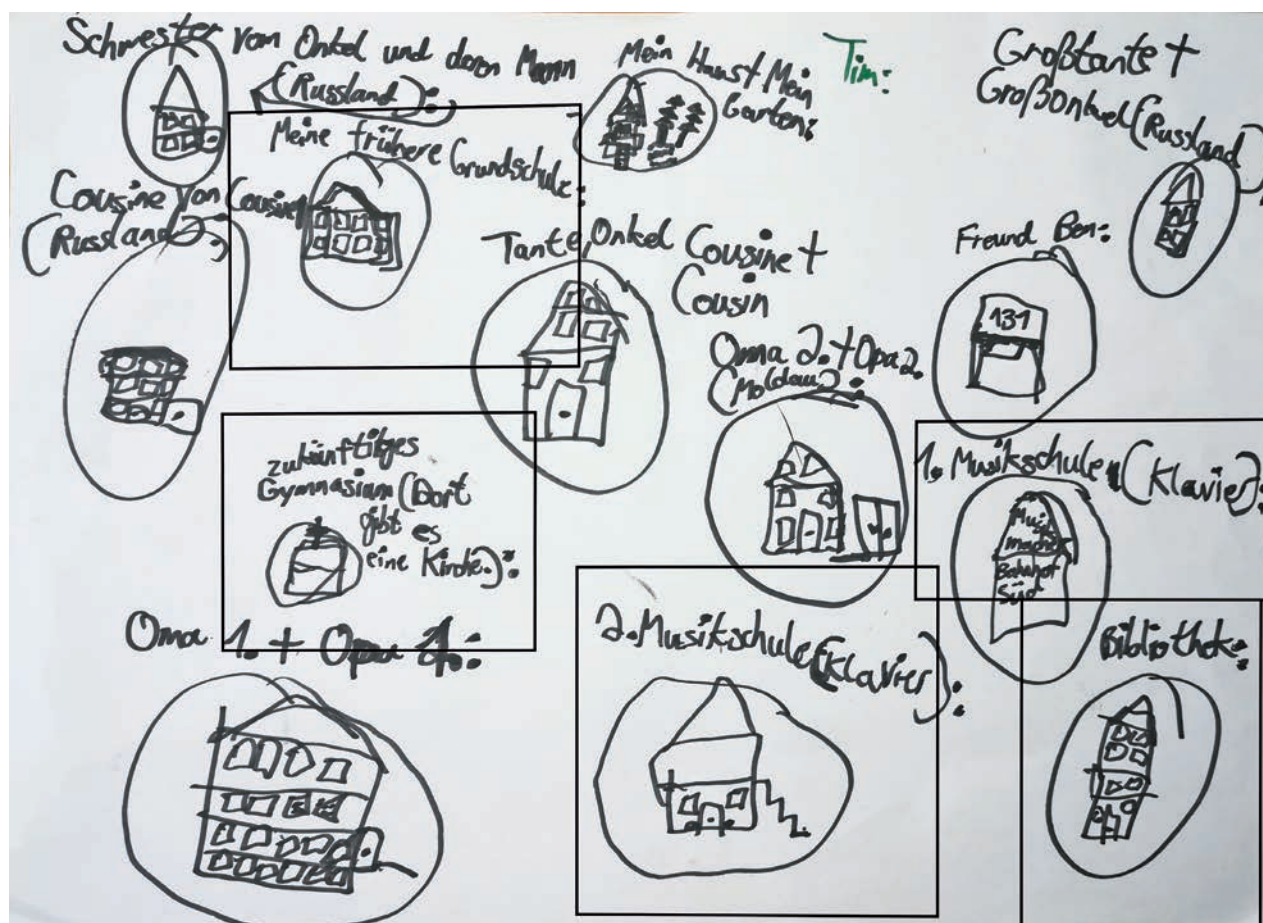 Schwester vom Onkel und deren Mann
(Russland):
Mein Haus+Mein
Garten:
Tim:
Großtante +
Großonkel(Russland):
Meine frühere
Grundschule:
Cousine von Cousine
(Russland):
Tante, Onkel Cousine +
Cousin
Freund Ben:
131
Oma 2.+Opa 2.
(Moldau):
zukünftitges
Gymnasium(Dort
gibt es
eine Kirche.):
1. Musikschule(Klavier):
Musik
macher
Bahnhof
Süd
Oma 1. + Opa 1.:
2. Musikschule(Klavier):
Bibliothek: